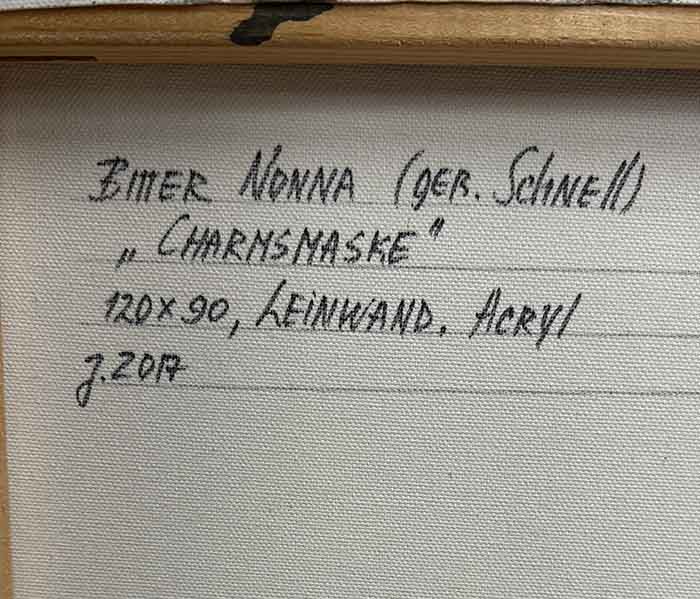 Bitter Nonna (ger. Schnell)
„Charmsmaske“
120x90, Leinwand. Acryl
J. 2017